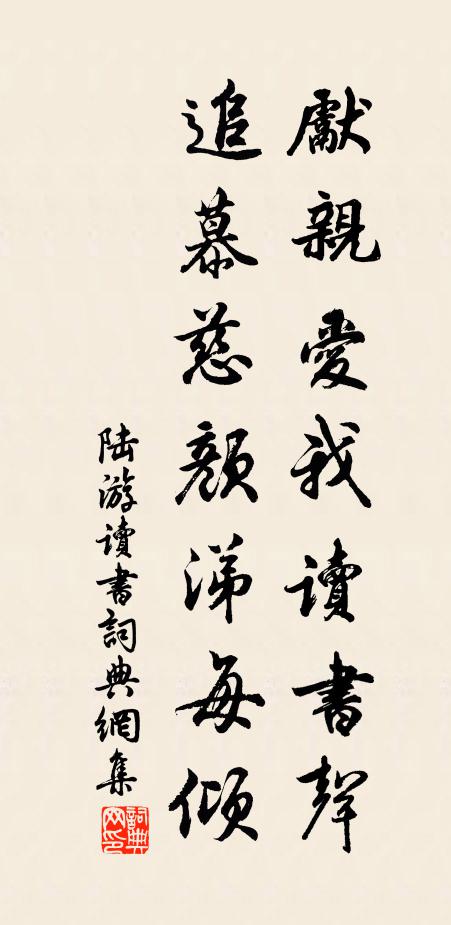 獻親愛我讀書聲
追慕慈顏涕每傾
陸游讀書詞典網集
詞典
网印